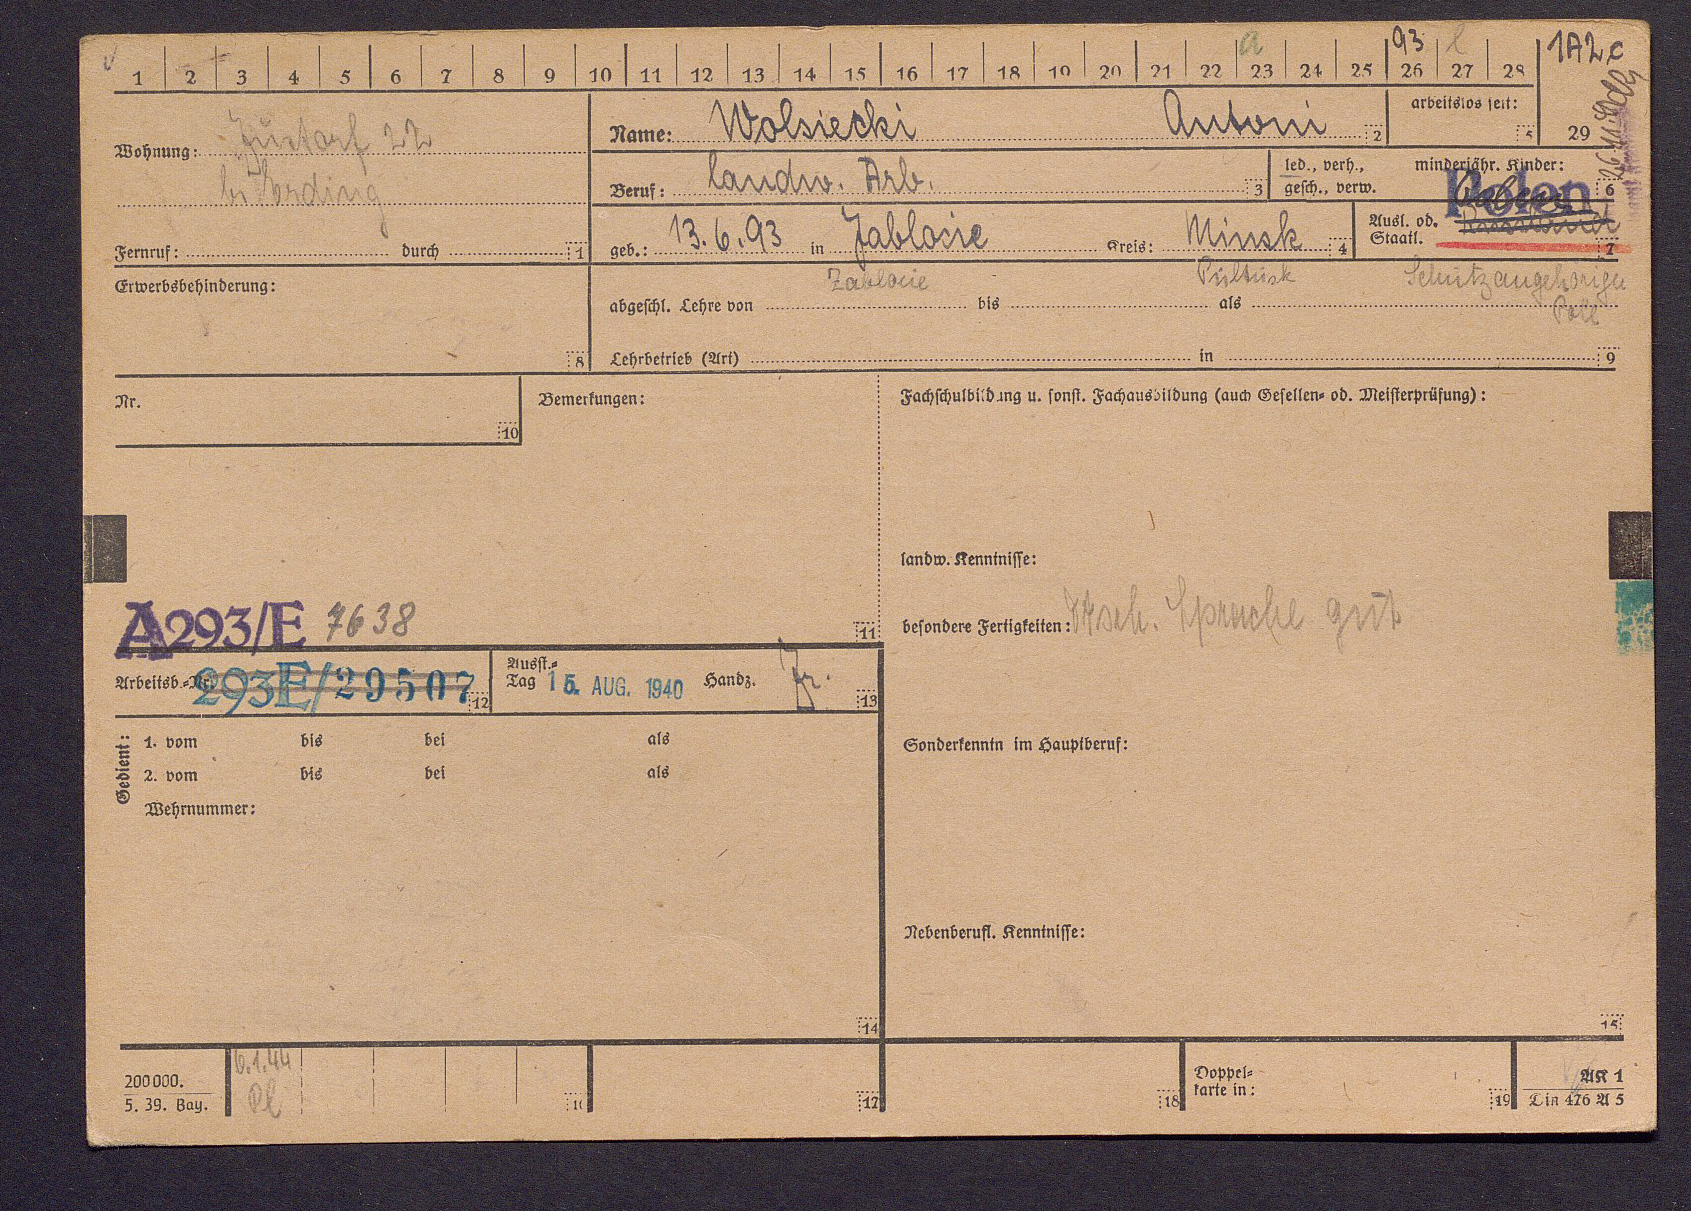 1 2 3 4 5 6 7 8 9 10 11 12 13 14 15 16 17 18 19 20 21 22 23 24 25 26 27 28
a 93 l 1A2c
Wohnung: Zustorf 22
b. Erding
Fernruf: durch 1
Name: Wolsiecki Antoni 2
arbeitslos seit: 5
29
Beruf: landw. Arb. 3
led., verh., gesch., verw.
minderjähr. Kinder: 6
geb.: 13.6.93 in Zablocie Kreis: Minsk 4
Ausl. od. Staatl. Polen 7
Zablocie Pultusk Schutzangehöriger
Pole
Erwerbsbehinderung: 8
abgeschl. Lehre von bis als
Lehrbetrieb (Art) in 9
Nr. 10
Bemerkungen: 11
Fachschulbildung u. sonst. Fachausbildung (auch Gesellen- od. Meisterprüfung):
landw. Kenntnisse:
besondere Fertigkeiten: Dtsch. Sprache gut
A293/E 7638
Arbeitsb.-Nr. 293E/29507 12
Ausst.-Tag 15. AUG. 1940 Handz. 13
Gedient:
1. vom bis bei als
2. vom bis bei als
Wehrnummer:
14
Sonderkenntn im Hauptberuf:
Nebenberufl. Kenntnisse:
15
200000.
5. 39. Bay.
6.1.44
Pl
16 17 18
Doppel-
karte in: 19
AK 1
Din 476 A 5